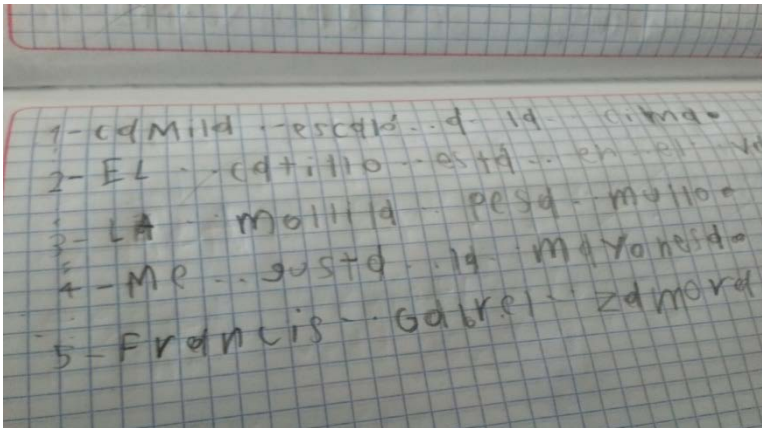 1-camila--escaló..a-la--cima.
2-EL..catillo--esta..en-el-
3-LA--mollila-pesa-mullo.
4-Me..gusta..la-mayonesa.
5-Francis--Gabrel-zamora